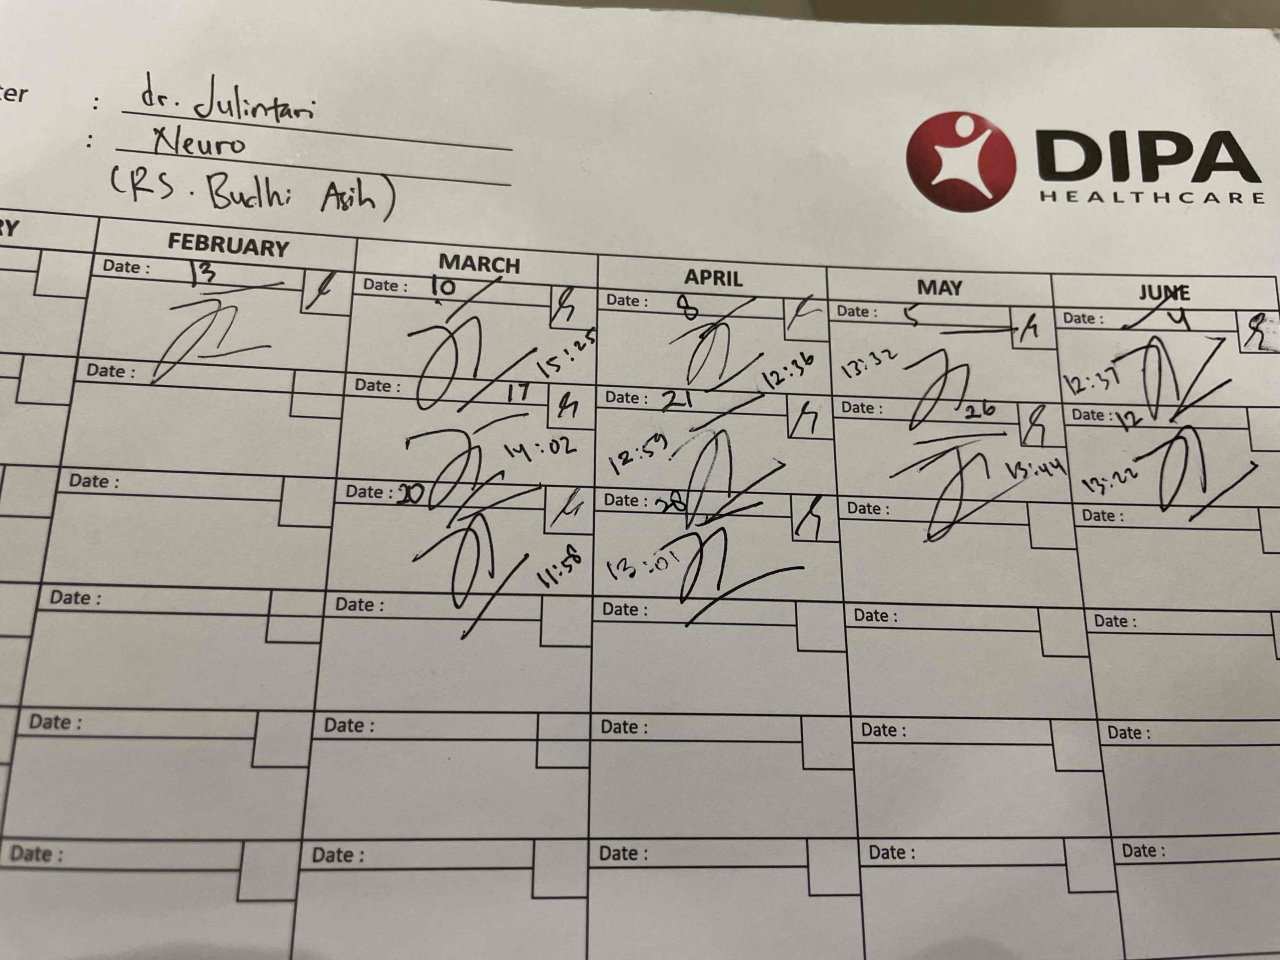 ter : dr. Julintari
: Neuro
(RS. Budhi Asih)
DIPA
HEALTHCARE
RY FEBRUARY MARCH APRIL MAY JUNE
Date : 13 Date : 10 Date : 8 Date : 5 Date : 4
15:25 12:36 13:32 12:37
Date : Date : 17 Date : 21 Date : 26 Date : 12
14:02 12:59 13:44 13:22
Date : Date : 20 Date : 28 Date : Date :
11:58 13:01
Date : Date : Date : Date : Date :
Date : Date : Date : Date : Date :
Date : Date : Date : Date : Date :